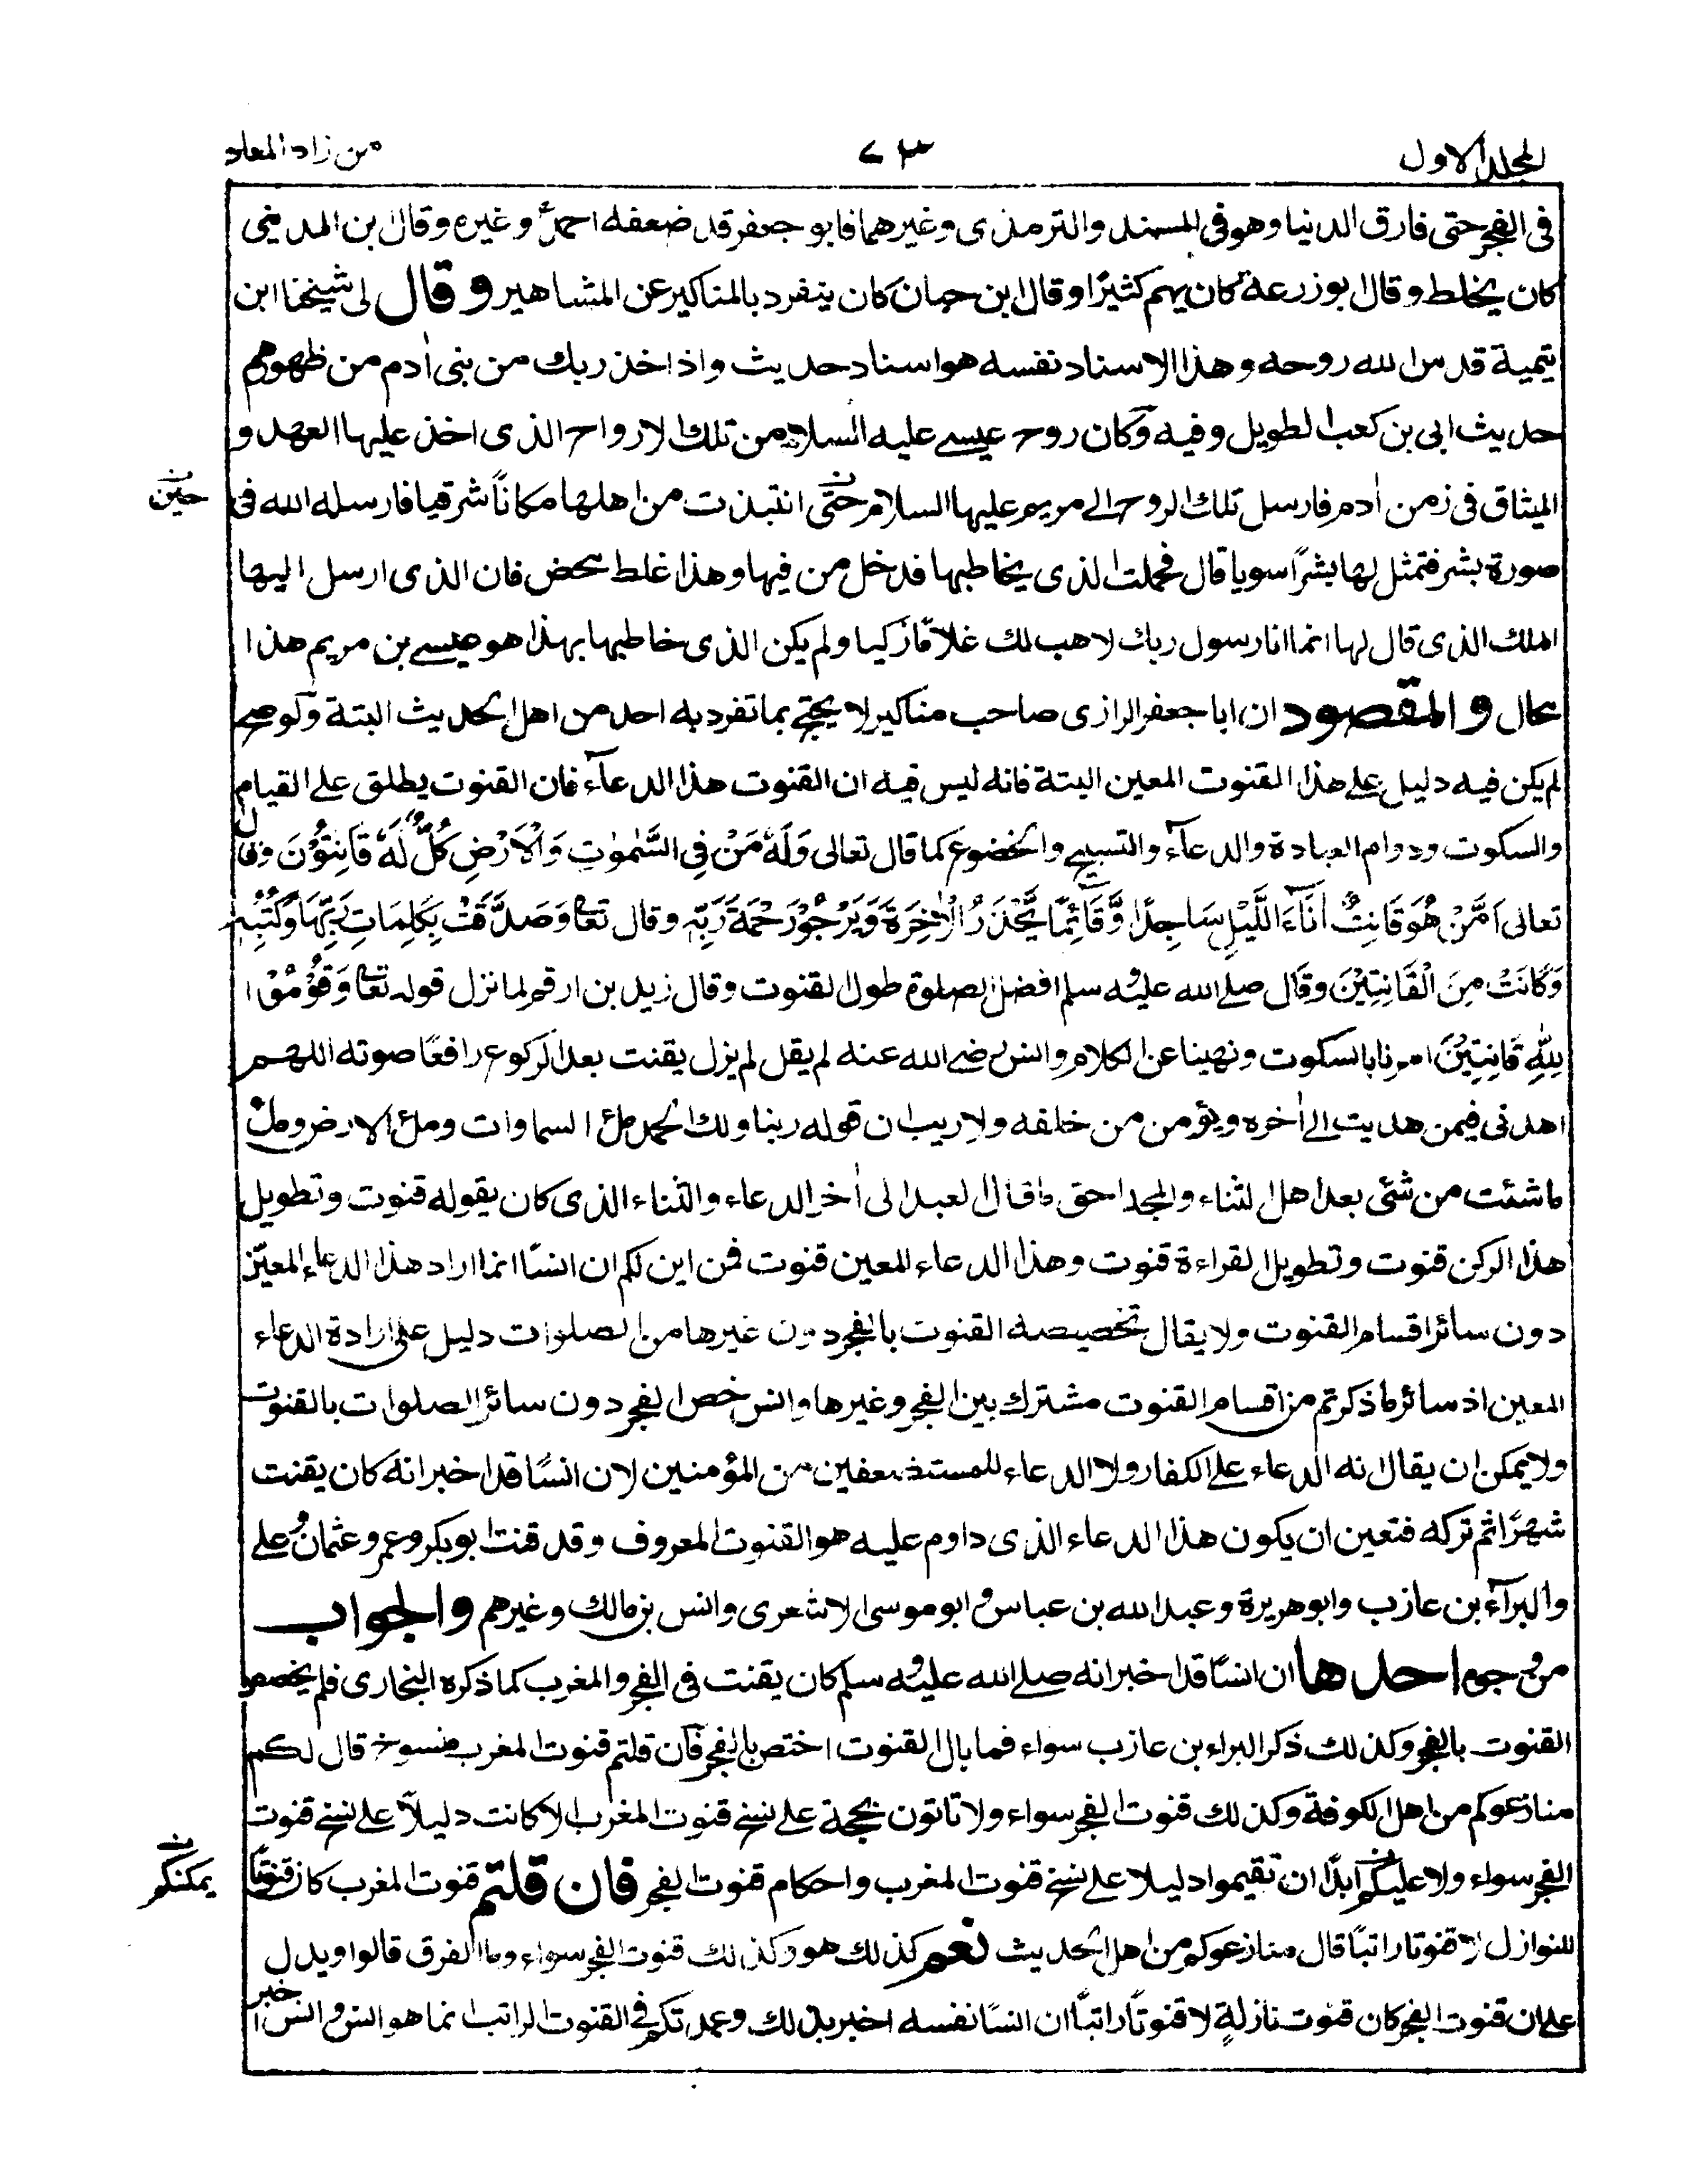 المجلد الاول
٧٣
من زاد المعاد
فى الفجر حتى فارق الدنيا وهو فى المسند والترمذى وغيرهما فابو جعفر قد ضعفه احمد وغيره وقال ابن المدينى
كان يخلط وقال ابو زرعة كان يهم كثيرًا وقال ابن حبان كان ينفرد بالمناكير عن المشاهير وقال لى شيخنا ابن
تيمية قدس الله روحه وهذا الاسناد نفسه هو اسناد حديث واذ اخذ ربك من بنى اٰدم من ظهورهم
حديث ابى بن كعب الطويل وفيه وكان روح عيسے عليه السلام من تلك الارواح الذى اخذ عليها العهد و
الميثاق فى زمن اٰدم فارسل تلك الروح الے مريم عليها السلام حتى انتبذت من اهلها مكانًا شرقيا فارسله الله فى
حين
صورة بشر فتمثل لها بشرًا سويا قال فحملت الذى يخاطبها فدخل من فيها وهذا غلط محض فان الذى ارسل اليها
الملك الذى قال لها انما انا رسول ربك لاهب لك غلامًا زكيا ولم يكن الذى خاطبها بهذا هو عيسے بن مريم هذا
محال والمقصود ان ابا جعفر الرازى صاحب مناكير لا يحتج بما تفرد به احد من اهل الحديث البتة ولو صح
لم يكن فيه دليل علے هذا القنوت المعين البتة فانه ليس فيه ان القنوت هذا الدعآء فان القنوت يطلق علے القيام
والسكوت ودوام العبادة والدعآء والتسبيح والخضوع كما قال تعالى وَلَهٗ مَنْ فِى السَّمٰوٰتِ وَالْاَرْضِ كُلٌّ لَهٗ قَانِتُوْنَ وقال
تعالى اَمَّنْ هُوَ قَانِتٌ اٰنَآءَ اللَّيْلِ سَاجِدًا وَّقَائِمًا يَّحْذَرُ الْاٰخِرَةَ وَيَرْجُوْ رَحْمَةَ رَبِّهٖ وقال تعا وَصَدَّقَتْ بِكَلِمَاتِ رَبِّهَا وَكُتُبِهٖ
وَكَانَتْ مِنَ الْقَانِتِيْنَ وقال صلے الله عليه وسلم افضل الصلوة طول القنوت وقال زيد بن ارقم لما نزل قوله تعا وَقُوْمُوْا
لِلّٰهِ قَانِتِيْنَ امرنا بالسكوت ونهينا عن الكلام وانس رضے الله عنه لم يقل لم يزل يقنت بعد الركوع رافعًا صوته اللهم
اهدنى فيمن هديت الے اٰخره ويؤمن من خلفه ولا ريب ان قوله ربنا ولك الحمد ملأ السماوات وملأ الارض وملأ
ما شئت من شئ بعد اهل الثناء والمجد احق ما قال العبد الى اٰخر الدعاء والثناء الذى كان يقوله قنوت وتطويل
هذا الركن قنوت وتطويل القراءة قنوت وهذا الدعاء المعين قنوت فمن اين لكم ان انسًا انما اراد هذا الدعاء المعين
دون سائر اقسام القنوت ولا يقال تخصيصه القنوت بالفجر دون غيرها من الصلوات دليل على ارادة الدعاء
المعين اذ سائر ما ذكرتم من اقسام القنوت مشترك بين الفجر وغيرها وانس خص الفجر دون سائر الصلوات بالقنوت
ولا يمكن ان يقال انه الدعاء علے الكفار ولا الدعاء للمستضعفين من المؤمنين لان انسًا قد اخبر انه كان يقنت
شهرًا ثم تركه فتعين ان يكون هذا الدعاء الذى داوم عليه هو القنوت المعروف وقد قنت ابو بكر وعمر وعثمان وعلے
والبرآء بن عازب وابو هريرة وعبد الله بن عباس وابو موسى الاشعرى وانس بن مالك وغيرهم والجواب
من وجوه احدها ان انسًا قد اخبر انه صلے الله عليه وسلم كان يقنت فى الفجر والمغرب كما ذكره البخارى فلم يخصص
القنوت بالفجر وكذلك ذكر البراء بن عازب سواء فما بال القنوت اختص بالفجر فان قلتم قنوت المغرب منسوخ قال لكم
منازعوكم من اهل الكوفة وكذلك قنوت الفجر سواء ولا تاتون بحجة علے نسخ قنوت المغرب الا كانت دليلًا علے نسخ قنوت
الفجر سواء ولا عليكم ابدًا ان تقيموا دليلا علے نسخ قنوت المغرب واحكام قنوت الفجر فان قلتم قنوت المغرب كان قنوتًا
يمكنكم
للنوازل لا قنوتا راتبًا قال منازعوكم من اهل الحديث نعم كذلك هو وكذلك قنوت الفجر سواء وما الفرق قالوا ويدل
علے ان قنوت الفجر كان قنوت نازلةٍ لا قنوتًا راتبًا ان انسًا نفسه اخبر بذلك وعمدتكم فى القنوت الراتب انما هو انس وانس اخبر